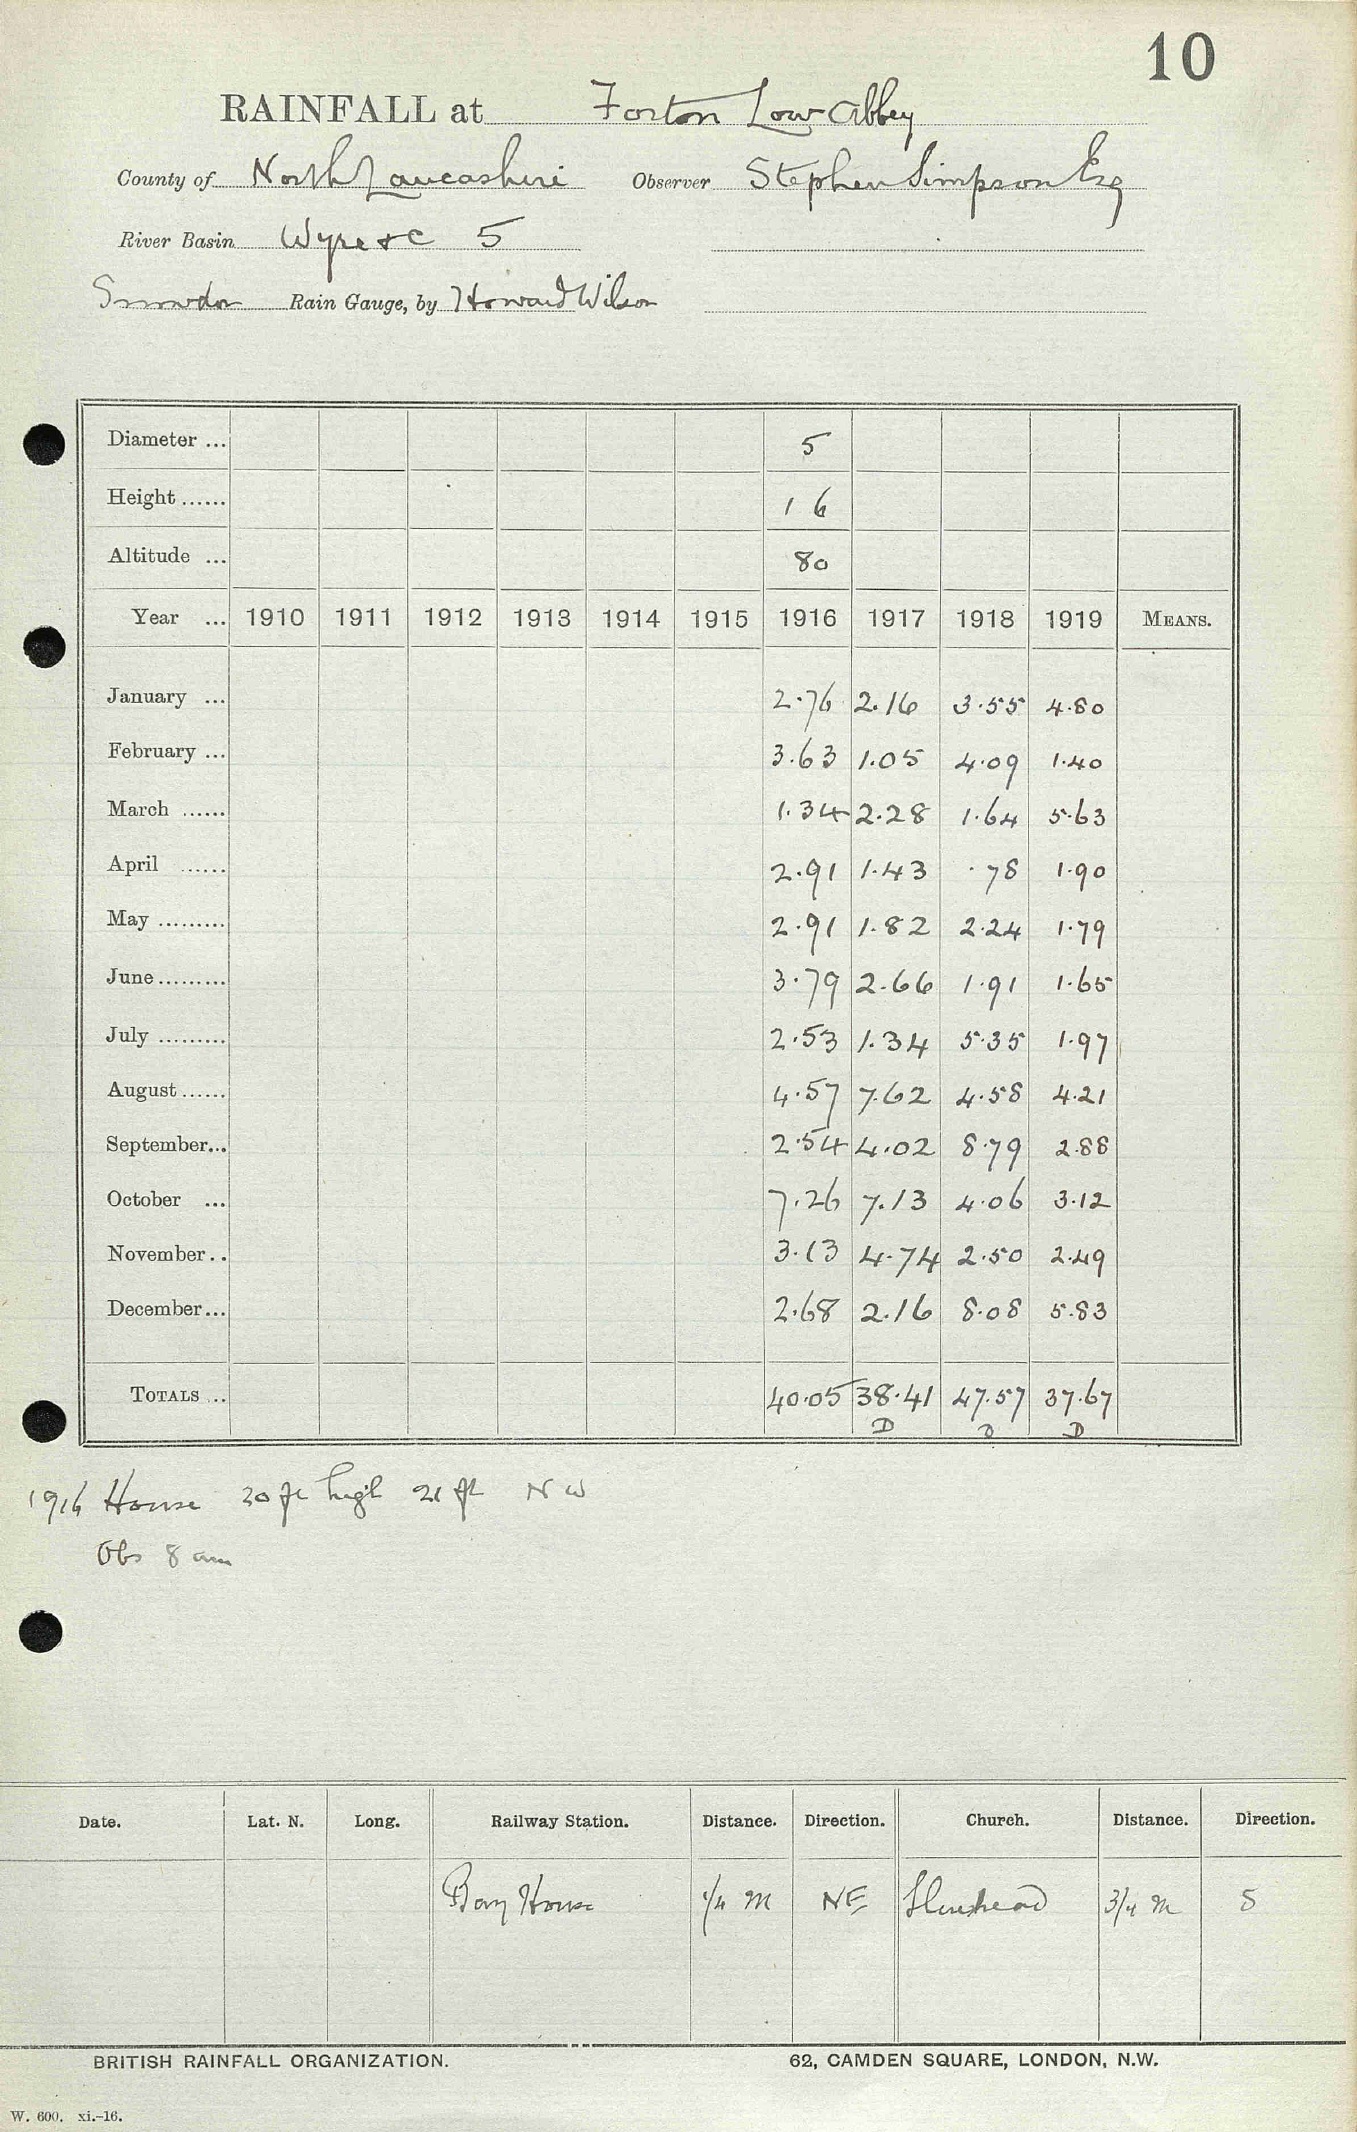 10
RAINFALL at Forton Low Abbey
County of North Lancashire Observer Stephen Simpson Esq
River Basin Wyre &c 5
Snowdon Rain Gauge, by Howard Wilson
Diameter ... 5
Height ...... 16
Altitude ... 80
Year ... 1910 1911 1912 1913 1914 1915 1916 1917 1918 1919 MEANS.
January ... 2.76 2.16 3.55 4.80
February ... 3.63 1.05 4.09 1.40
March ...... 1.34 2.28 1.64 5.63
April ...... 2.91 1.43 .78 1.90
May ......... 2.91 1.82 2.24 1.79
June ......... 3.79 2.66 1.91 1.65
July ......... 2.53 1.34 5.35 1.97
August ...... 4.57 7.62 4.58 4.21
September... 2.54 4.02 8.79 2.88
October ... 7.26 7.13 4.06 3.12
November.. 3.13 4.74 2.50 2.49
December... 2.68 2.16 8.08 5.83
TOTALS ... 40.05 38.41 47.57 37.67
D D D
1916 House 30 ft high 21 ft NW
Obs 8 am
Date. Lat. N. Long. Railway Station. Distance. Direction. Church. Distance. Direction.
Bay Horse 1/4 M NE Shireshead 3/4 M S
BRITISH RAINFALL ORGANIZATION. 62, CAMDEN SQUARE, LONDON, N.W.
W. 600. xi.-16.